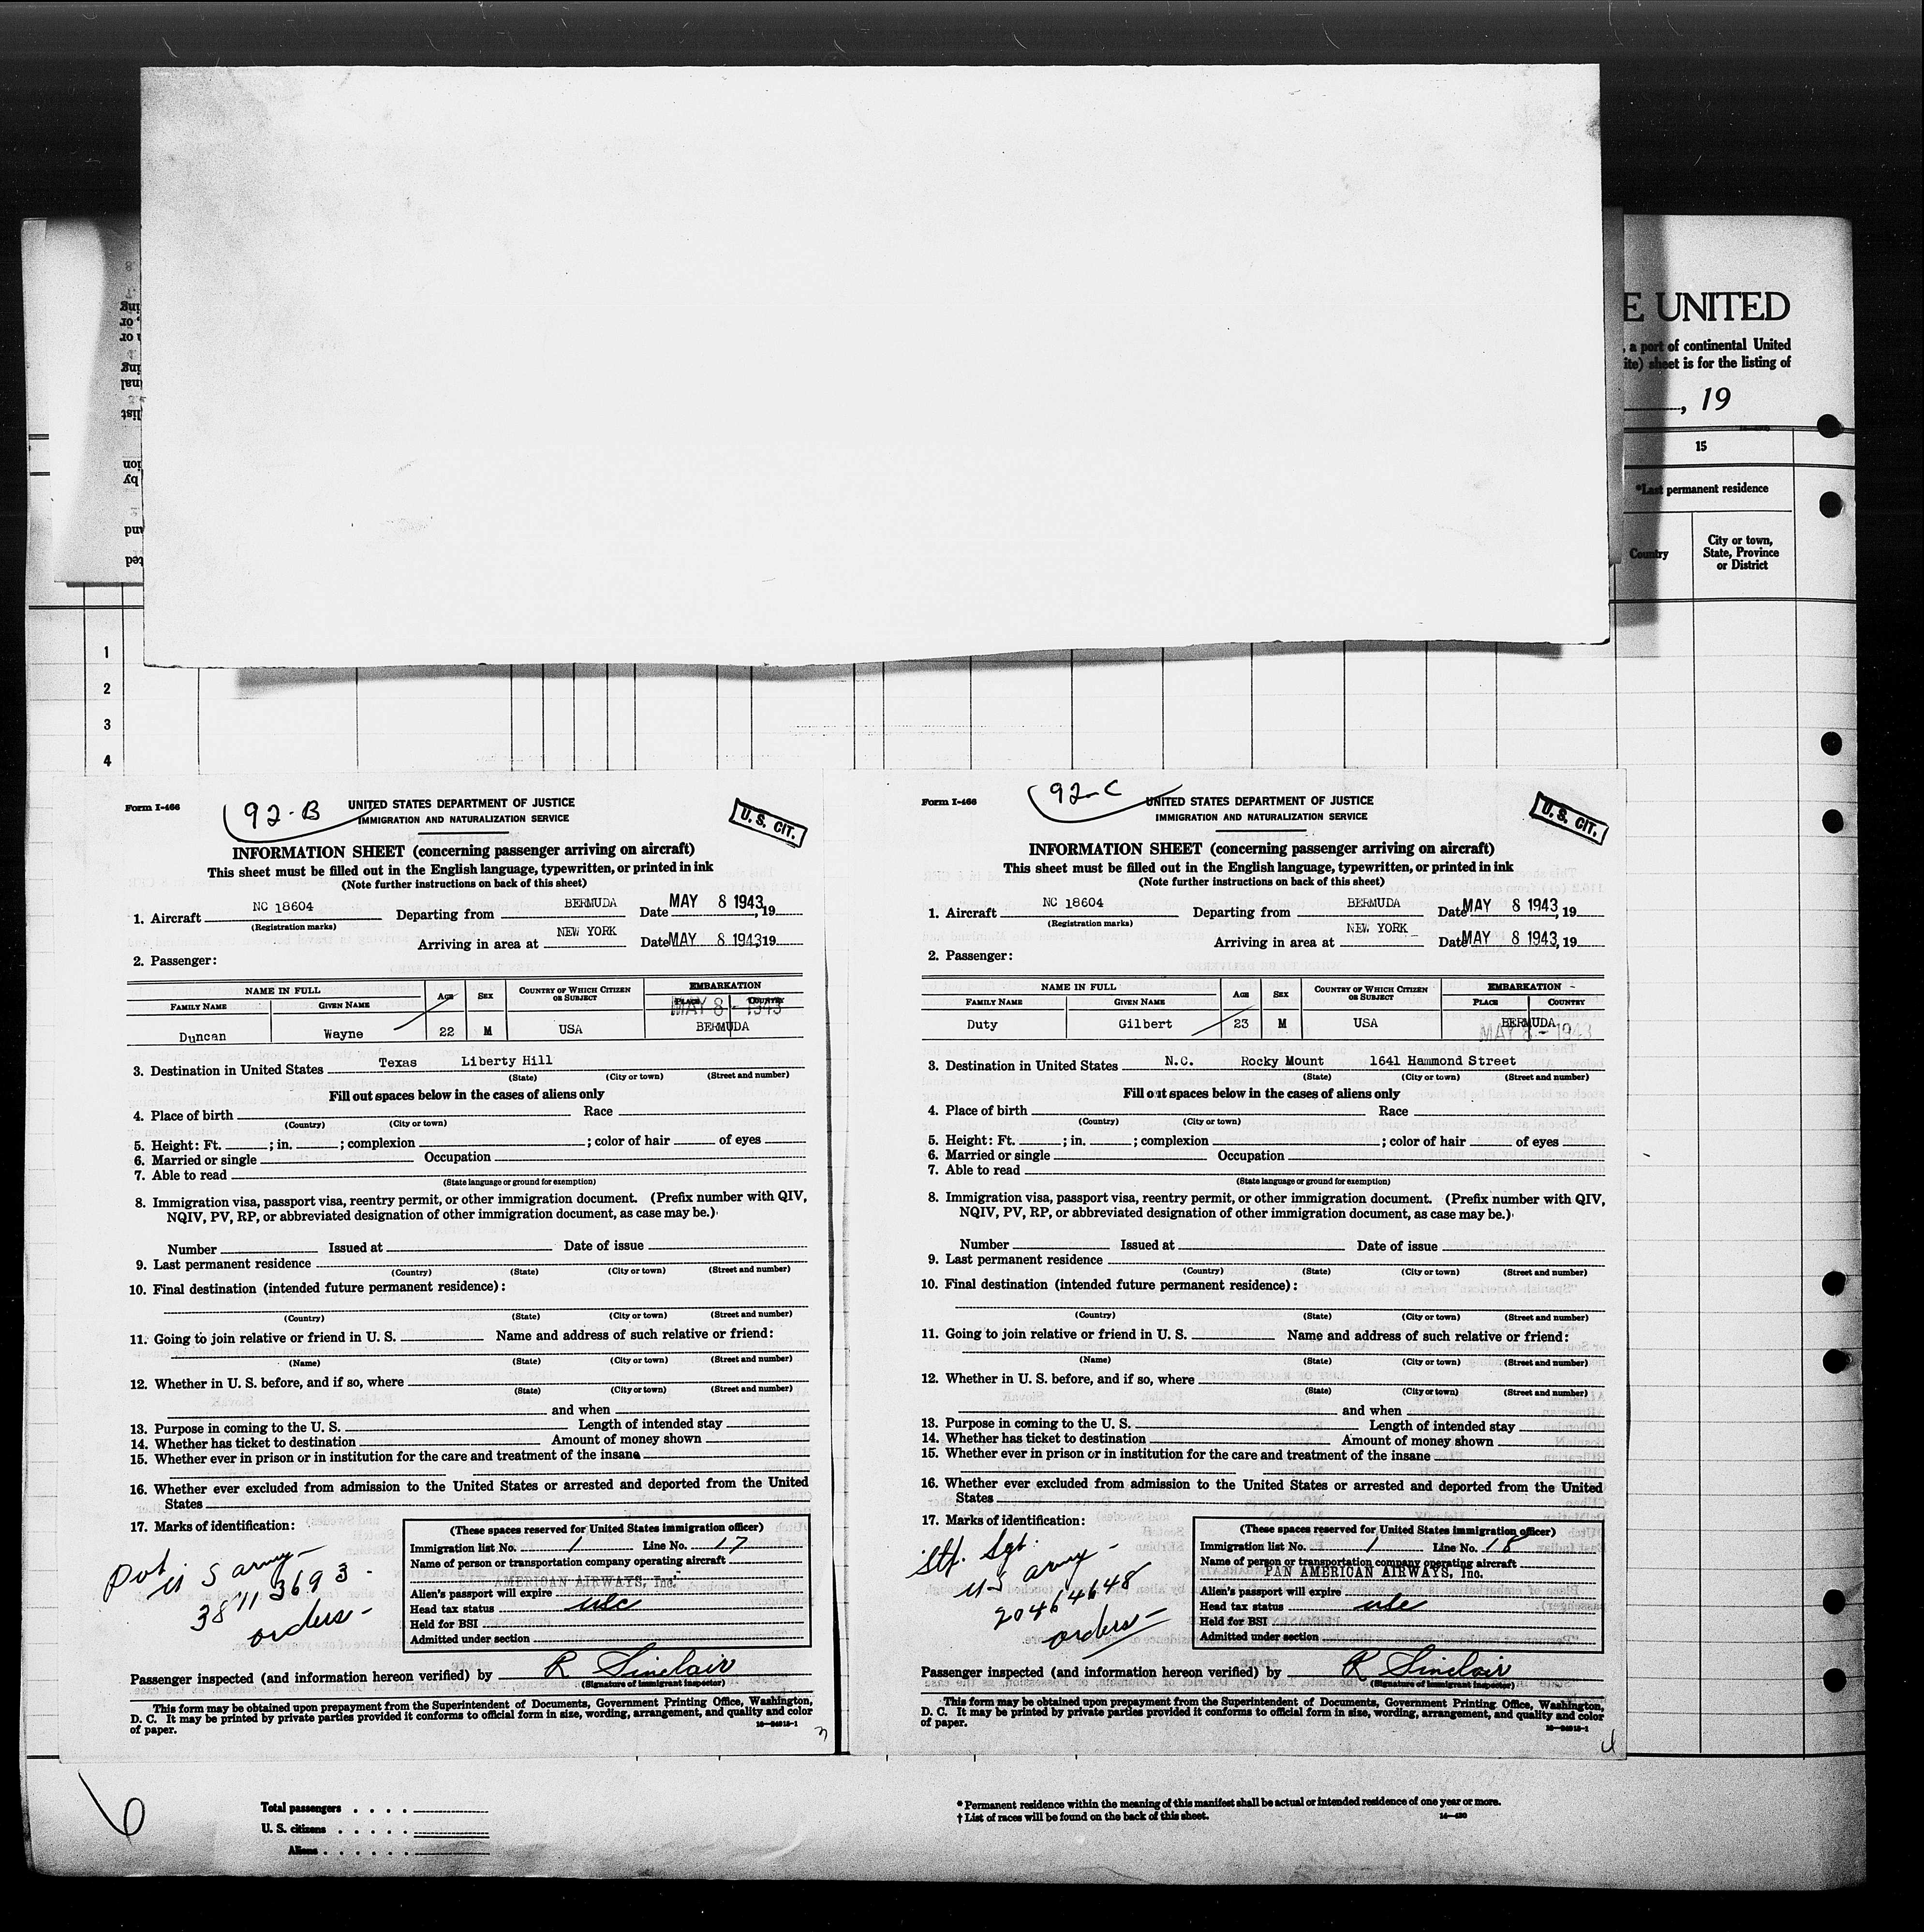 E UNITED
, a port of continental United
ite) sheet is for the listing of
, 19
15
*Last permanent residence
Country
City or town,
State, Province
or District
1
2
3
4
Form I-466
92-B
UNITED STATES DEPARTMENT OF JUSTICE
IMMIGRATION AND NATURALIZATION SERVICE
U. S. CIT.
INFORMATION SHEET (concerning passenger arriving on aircraft)
This sheet must be filled out in the English language, typewritten, or printed in ink
(Note further instructions on back of this sheet)
1. Aircraft NC 18604 Departing from BERMUDA Date MAY 8 1943, 19
(Registration marks)
Arriving in area at NEW YORK Date MAY 8 1943 19
2. Passenger:
NAME IN FULL
FAMILY NAME GIVEN NAME AGE SEX COUNTRY OF WHICH CITIZEN OR SUBJECT EMBARKATION
PLACE COUNTRY
MAY 8 - 1943
Duncan Wayne 22 M USA BERMUDA
3. Destination in United States Texas Liberty Hill
(State) (City or town) (Street and number)
Fill out spaces below in the cases of aliens only
4. Place of birth Race
(Country) (City or town)
5. Height: Ft. ; in. ; complexion ; color of hair of eyes
6. Married or single Occupation
7. Able to read
(State language or ground for exemption)
8. Immigration visa, passport visa, reentry permit, or other immigration document. (Prefix number with QIV,
NQIV, PV, RP, or abbreviated designation of other immigration document, as case may be.)
Number Issued at Date of issue
9. Last permanent residence
(Country) (State) (City or town) (Street and number)
10. Final destination (intended future permanent residence):
(Country) (State) (City or town) (Street and number)
11. Going to join relative or friend in U. S. Name and address of such relative or friend:
(Name) (State) (City or town) (Street and number)
12. Whether in U. S. before, and if so, where
(State) (City or town) (Street and number)
and when
13. Purpose in coming to the U. S. Length of intended stay
14. Whether has ticket to destination Amount of money shown
15. Whether ever in prison or in institution for the care and treatment of the insane
16. Whether ever excluded from admission to the United States or arrested and deported from the United
States
17. Marks of identification:
Pvt.
U S army
38113693
orders
(These spaces reserved for United States immigration officer)
Immigration list No. 1 Line No. 17
Name of person or transportation company operating aircraft
AMERICAN AIRWAYS, Inc.
Alien's passport will expire
Head tax status usc
Held for BSI
Admitted under section
Passenger inspected (and information hereon verified) by R Sinclair
(Signature of immigrant inspector)
This form may be obtained upon prepayment from the Superintendent of Documents, Government Printing Office, Washington,
D. C. It may be printed by private parties provided it conforms to official form in size, wording, arrangement, and quality and color
of paper.
3
Form I-466
92-C
UNITED STATES DEPARTMENT OF JUSTICE
IMMIGRATION AND NATURALIZATION SERVICE
U. S. CIT.
INFORMATION SHEET (concerning passenger arriving on aircraft)
This sheet must be filled out in the English language, typewritten, or printed in ink
(Note further instructions on back of this sheet)
1. Aircraft NC 18604 Departing from BERMUDA Date MAY 8 1943, 19
(Registration marks)
Arriving in area at NEW YORK Date MAY 8 1943, 19
2. Passenger:
NAME IN FULL
FAMILY NAME GIVEN NAME AGE SEX COUNTRY OF WHICH CITIZEN OR SUBJECT EMBARKATION
PLACE COUNTRY
Duty Gilbert 23 M USA BERMUDA
MAY 8 - 1943
3. Destination in United States N.C. Rocky Mount 1641 Hammond Street
(State) (City or town) (Street and number)
Fill out spaces below in the cases of aliens only
4. Place of birth Race
(Country) (City or town)
5. Height: Ft. ; in. ; complexion ; color of hair of eyes
6. Married or single Occupation
7. Able to read
(State language or ground for exemption)
8. Immigration visa, passport visa, reentry permit, or other immigration document. (Prefix number with QIV,
NQIV, PV, RP, or abbreviated designation of other immigration document, as case may be.)
Number Issued at Date of issue
9. Last permanent residence
(Country) (State) (City or town) (Street and number)
10. Final destination (intended future permanent residence):
(Country) (State) (City or town) (Street and number)
11. Going to join relative or friend in U. S. Name and address of such relative or friend:
(Name) (State) (City or town) (Street and number)
12. Whether in U. S. before, and if so, where
(State) (City or town) (Street and number)
and when
13. Purpose in coming to the U. S. Length of intended stay
14. Whether has ticket to destination Amount of money shown
15. Whether ever in prison or in institution for the care and treatment of the insane
16. Whether ever excluded from admission to the United States or arrested and deported from the United
States
17. Marks of identification:
Stf. Sgt.
U S army
20464648
orders
(These spaces reserved for United States immigration officer)
Immigration list No. 1 Line No. 18
Name of person or transportation company operating aircraft
PAN AMERICAN AIRWAYS, Inc.
Alien's passport will expire
Head tax status usc
Held for BSI
Admitted under section
Passenger inspected (and information hereon verified) by R Sinclair
(Signature of immigrant inspector)
This form may be obtained upon prepayment from the Superintendent of Documents, Government Printing Office, Washington,
D. C. It may be printed by private parties provided it conforms to official form in size, wording, arrangement, and quality and color
of paper.
4
6
Total passengers . . . .
U. S. citizens . . . . .
Aliens . . . . . . .
* Permanent residence within the meaning of this manifest shall be actual or intended residence of one year or more.
† List of races will be found on the back of this sheet.